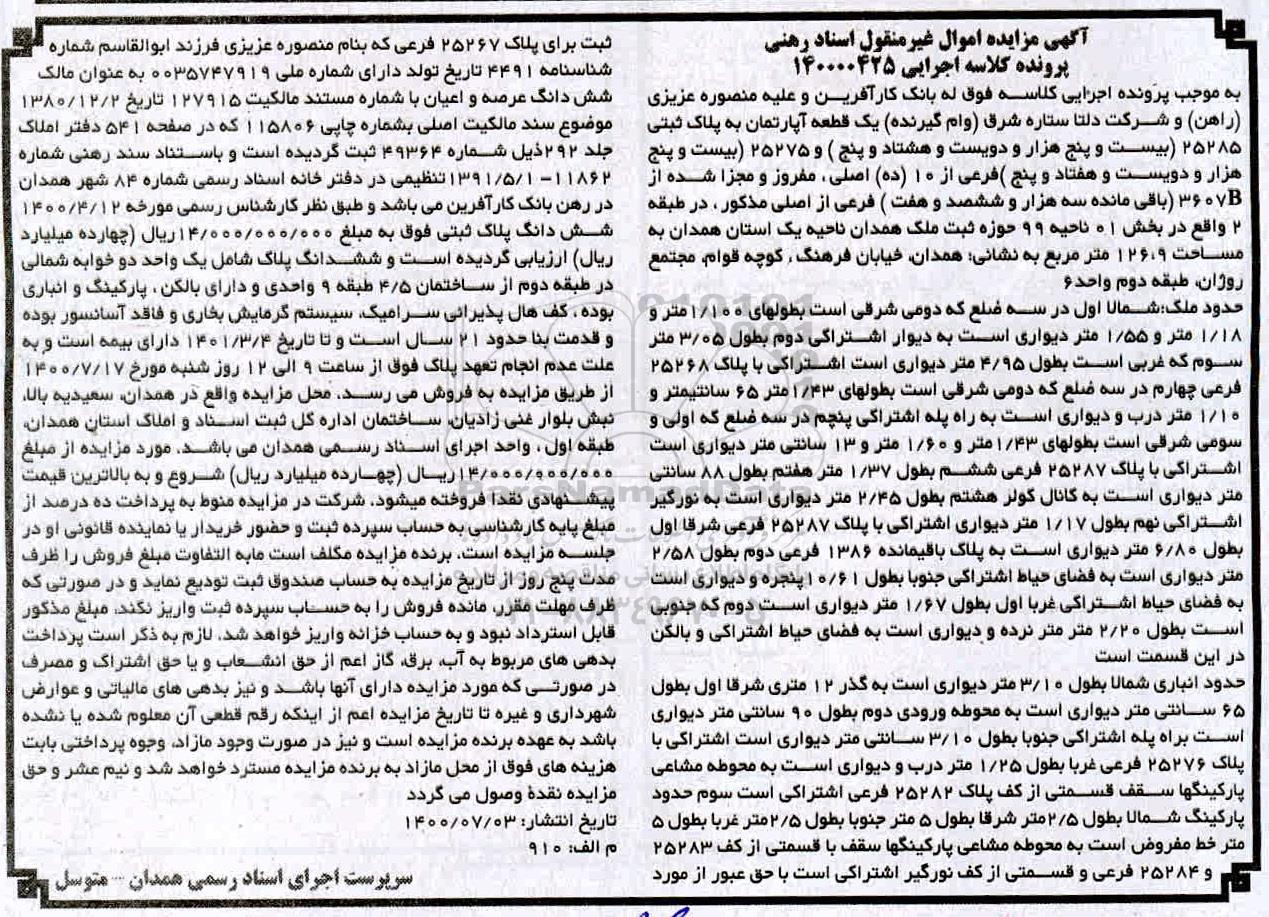 آگهی مزایده اموال غیرمنقول اسناد رهنی
پرونده کلاسه اجرایی ۱۴۰۰۰۰۴۲۵
به موجب پرونده اجرایی کلاسه فوق له بانک کارآفرین و علیه منصوره عزیزی
(راهن) و شرکت دلتا ستاره شرق (وام گیرنده) یک قطعه آپارتمان به پلاک ثبتی
۲۵۲۸۵ (بیست و پنج هزار و دویست و هشتاد و پنج ) و ۲۵۲۷۵ (بیست و پنج
هزار و دویست و هفتاد و پنج )فرعی از ۱۰ (ده) اصلی ، مفروز و مجزا شده از
۳۶۰۷B (باقی مانده سه هزار و ششصد و هفت ) فرعی از اصلی مذکور ، در طبقه
۲ واقع در بخش ۰۱ ناحیه ۹۹ حوزه ثبت ملک همدان ناحیه یک استان همدان به
مساحت ۱۲۶.۹ متر مربع به نشانی: همدان، خیابان فرهنگ ، کوچه قوام، مجتمع
روژان، طبقه دوم واحد۶
حدود ملک:شمالا اول در سه ضلع که دومی شرقی است بطولهای ۱/۱۰۰متر و
۱/۱۸ متر و ۱/۵۵ متر دیواری است به دیوار اشتراکی دوم بطول ۳/۰۵ متر
سوم که غربی است بطول ۴/۹۵ متر دیواری است اشتراکی با پلاک ۲۵۲۶۸
فرعی چهارم در سه ضلع که دومی شرقی است بطولهای ۱/۴۳متر ۶۵ سانتیمتر و
۱/۱۰ متر درب و دیواری است به راه پله اشتراکی پنچم در سه ضلع که اولی و
سومی شرقی است بطولهای ۱/۴۳متر و ۱/۶۰ متر و ۱۳ سانتی متر دیواری است
اشتراکی با پلاک ۲۵۲۸۷ فرعی ششم بطول ۱/۳۷ متر هفتم بطول ۸۸ سانتی
متر دیواری است به کانال کولر هشتم بطول ۲/۴۵ متر دیواری است به نورگیر
اشتراکی نهم بطول ۱/۱۷ متر دیواری اشتراکی با پلاک ۲۵۲۸۷ فرعی شرقا اول
بطول ۶/۸۰ متر دیواری است به پلاک باقیمانده ۱۳۸۶ فرعی دوم بطول ۲/۵۸
متر دیواری است به فضای حیاط اشتراکی جنوبا بطول ۱۰/۶۱پنجره و دیواری است
به فضای حیاط اشتراکی غربا اول بطول ۱/۶۷ متر دیواری است دوم که جنوبی
است بطول ۲/۲۰ متر متر نرده و دیواری است به فضای حیاط اشتراکی و بالکن
در این قسمت است
حدود انباری شمالا بطول ۳/۱۰ متر دیواری است به گذر ۱۲ متری شرقا اول بطول
۶۵ سانتی متر دیواری است به محوطه ورودی دوم بطول ۹۰ سانتی متر دیواری
است براه پله اشتراکی جنوبا بطول ۳/۱۰ سانتی متر دیواری است اشتراکی با
پلاک ۲۵۲۷۶ فرعی غربا بطول ۱/۲۵ متر درب و دیواری است به محوطه مشاعی
پارکینگها سقف قسمتی از کف پلاک ۲۵۲۸۲ فرعی اشتراکی است سوم حدود
پارکینگ شمالا بطول ۲/۵متر شرقا بطول ۵ متر جنوبا بطول ۲/۵متر غربا بطول ۵
متر خط مفروض است به محوطه مشاعی پارکینگها سقف با قسمتی از کف ۲۵۲۸۳
و ۲۵۲۸۴ فرعی و قسمتی از کف نورگیر اشتراکی است با حق عبور از مورد
ثبت برای پلاک ۲۵۲۶۷ فرعی که بنام منصوره عزیزی فرزند ابوالقاسم شماره
شناسنامه ۴۴۹۱ تاریخ تولد دارای شماره ملی ۰۰۳۵۷۴۷۹۱۹ به عنوان مالک
شش دانگ عرصه و اعیان با شماره مستند مالکیت ۱۲۷۹۱۵ تاریخ ۱۳۸۰/۱۲/۲
موضوع سند مالکیت اصلی بشماره چاپی ۱۱۵۸۰۶ که در صفحه ۵۴۱ دفتر املاک
جلد ۲۹۲ذیل شماره ۴۹۳۶۴ ثبت گردیده است و باستناد سند رهنی شماره
۱۱۸۶۲- ۱۳۹۱/۵/۱تنظیمی در دفتر خانه اسناد رسمی شماره ۸۴ شهر همدان
در رهن بانک کارآفرین می باشد و طبق نظر کارشناس رسمی مورخه ۱۴۰۰/۴/۱۲
شش دانگ پلاک ثبتی فوق به مبلغ ۱۴/۰۰۰/۰۰۰/۰۰۰ریال (چهارده میلیارد
ریال) ارزیابی گردیده است و ششدانگ پلاک شامل یک واحد دو خوابه شمالی
در طبقه دوم از ساختمان ۴/۵ طبقه ۹ واحدی و دارای بالکن ، پارکینگ و انباری
بوده ، کف هال پذیرائی سرامیک، سیستم گرمایش بخاری و فاقد آسانسور بوده
و قدمت بنا حدود ۲۱ سال است و تا تاریخ ۱۴۰۱/۳/۴ دارای بیمه است و به
علت عدم انجام تعهد پلاک فوق از ساعت ۹ الی ۱۲ روز شنبه مورخ ۱۴۰۰/۷/۱۷
از طریق مزایده به فروش می رسد. محل مزایده واقع در همدان، سعیدیه بالا،
نبش بلوار غنی زادیان، ساختمان اداره کل ثبت اسناد و املاک استان همدان،
طبقه اول ، واحد اجرای اسناد رسمی همدان می باشد. مورد مزایده از مبلغ
۱۴/۰۰۰/۰۰۰/۰۰۰ریال (چهارده میلیارد ریال) شروع و به بالاترین قیمت
پیشنهادی نقدا فروخته میشود. شرکت در مزایده منوط به پرداخت ده درصد از
مبلغ پایه کارشناسی به حساب سپرده ثبت و حضور خریدار یا نماینده قانونی او در
جلسه مزایده است. برنده مزایده مکلف است مابه التفاوت مبلغ فروش را ظرف
مدت پنج روز از تاریخ مزایده به حساب صندوق ثبت تودیع نماید و در صورتی که
ظرف مهلت مقرر، مانده فروش را به حساب سپرده ثبت واریز نکند، مبلغ مذکور
قابل استرداد نبود و به حساب خزانه واریز خواهد شد. لازم به ذکر است پرداخت
بدهی های مربوط به آب، برق، گاز اعم از حق انشعاب و یا حق اشتراک و مصرف
در صورتی که مورد مزایده دارای آنها باشد و نیز بدهی های مالیاتی و عوارض
شهرداری و غیره تا تاریخ مزایده اعم از اینکه رقم قطعی آن معلوم شده یا نشده
باشد به عهده برنده مزایده است و نیز در صورت وجود مازاد، وجوه پرداختی بابت
هزینه های فوق از محل مازاد به برنده مزایده مسترد خواهد شد و نیم عشر و حق
مزایده نقدهٔ وصول می گردد
تاریخ انتشار: ۱۴۰۰/۰۷/۰۳
م الف: ۹۱۰
سرپرست اجرای اسناد رسمی همدان – متوسل